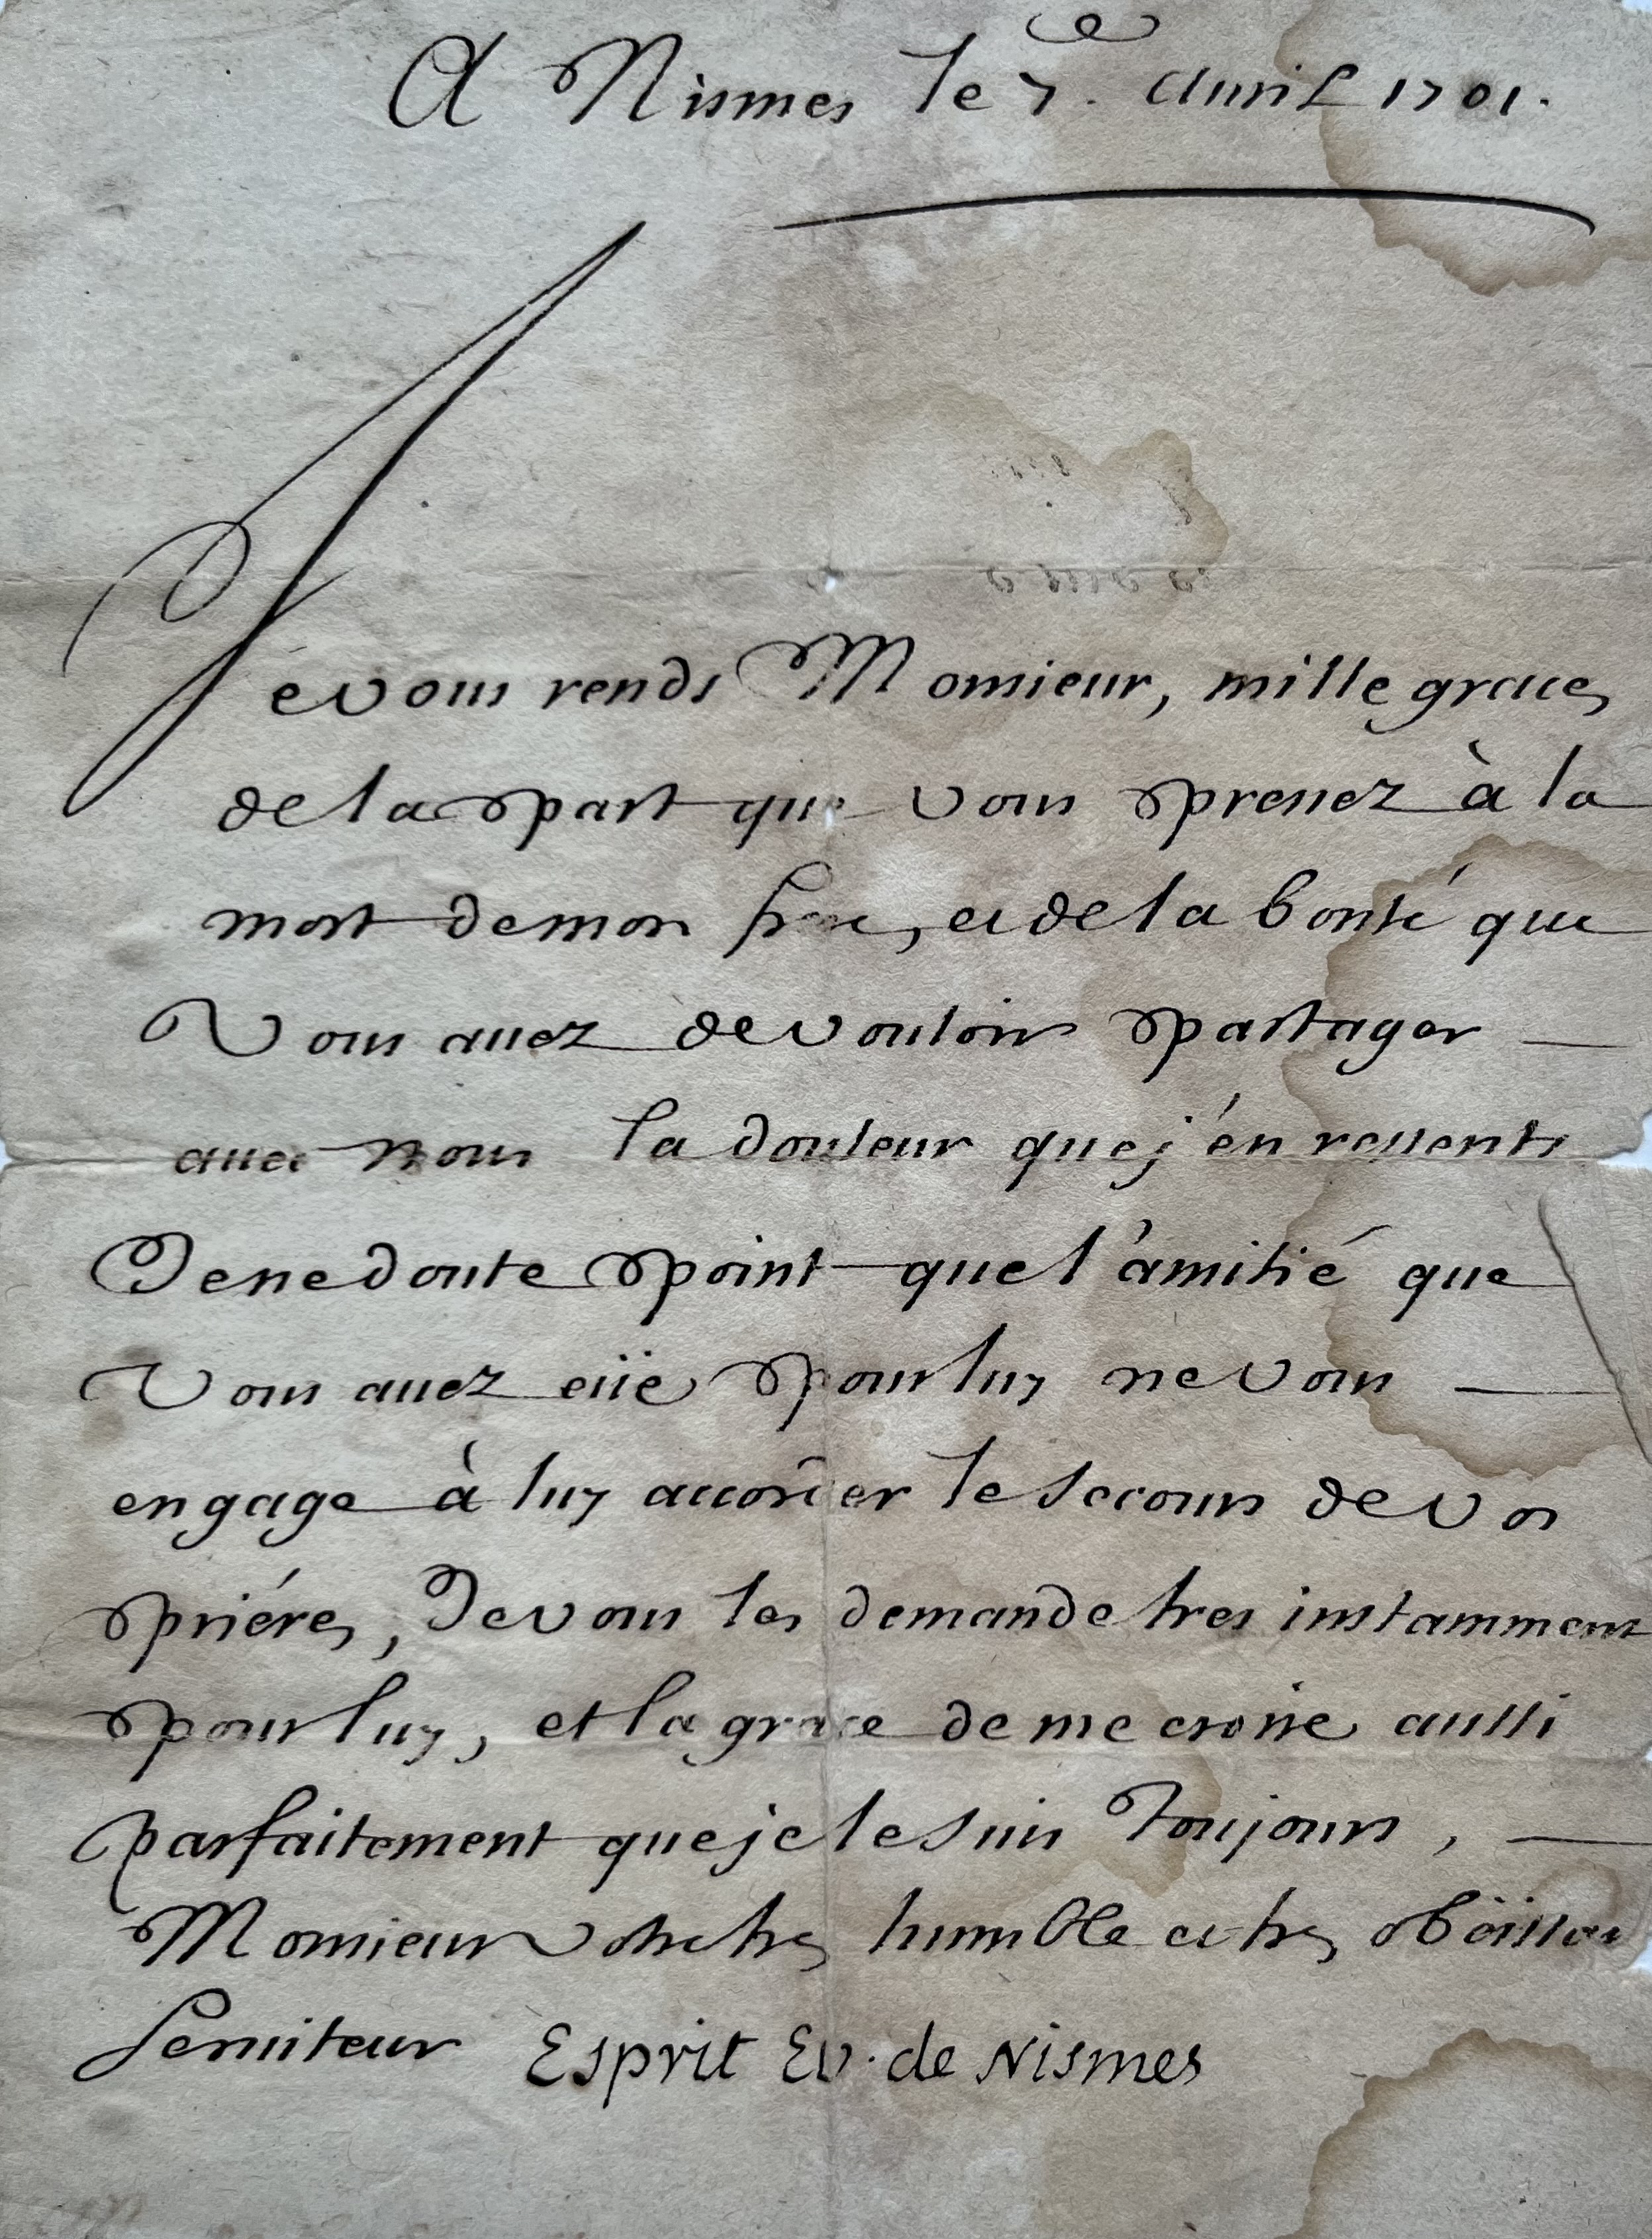 A Nismes le 7e. Auril 1701.
Je vous rends Monsieur, mille graces
de la part que vous prenez à la
mort de mon frere, et de la bonté que
Vous auez de vouloir partager
auec nous la douleur que j'én ressents
Je ne doute point que l'amitié que
Vous auez eüe pour luy ne vous
engage à luy accorder le secours de vos
priéres, Je vous les demande tres instamment
pour luy, et la grace de me croire aussi
parfaitement que je le suis Toujours,
Monsieur votre tres humble et tres obëissant
Seruiteur Esprit Ev. de Nismes